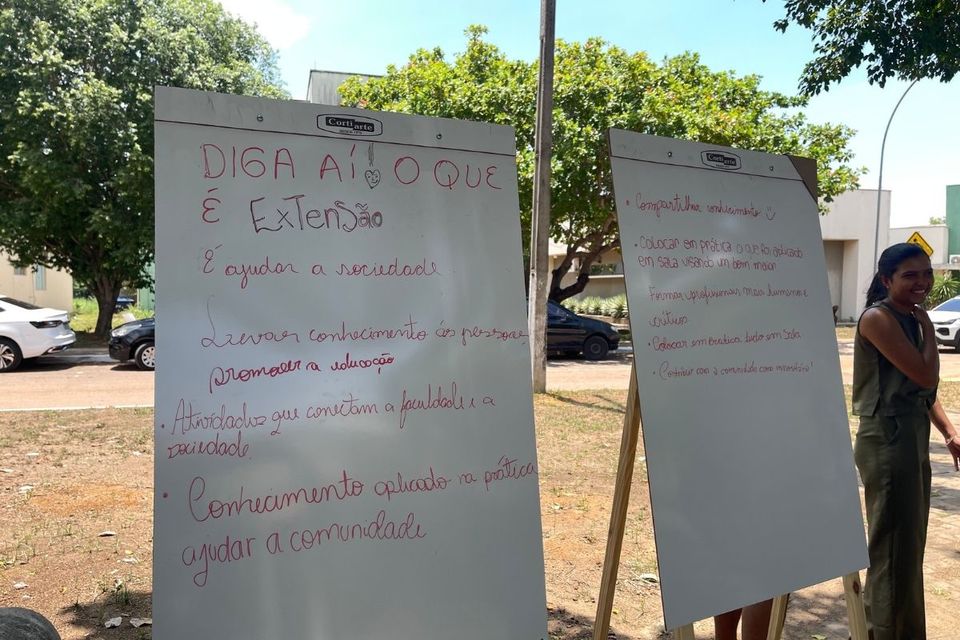 Cortiarte
DIGA AÍ! O QUE
É EXTENSÃO
É ajudar a sociedade
Levar conhecimento às pessoas
promover a educação
• Atividades que conectam a faculdade e a
sociedade.
• Conhecimento aplicado na prática
ajudar a comunidade
Cortiarte
• Compartilhar conhecimento
• Colocar em prática o que foi aplicado
em sala visando um bem maior
Formar profissionais mais humanos e
críticos
• Colocar em prática tudo em sala
• Contribuir com a comunidade